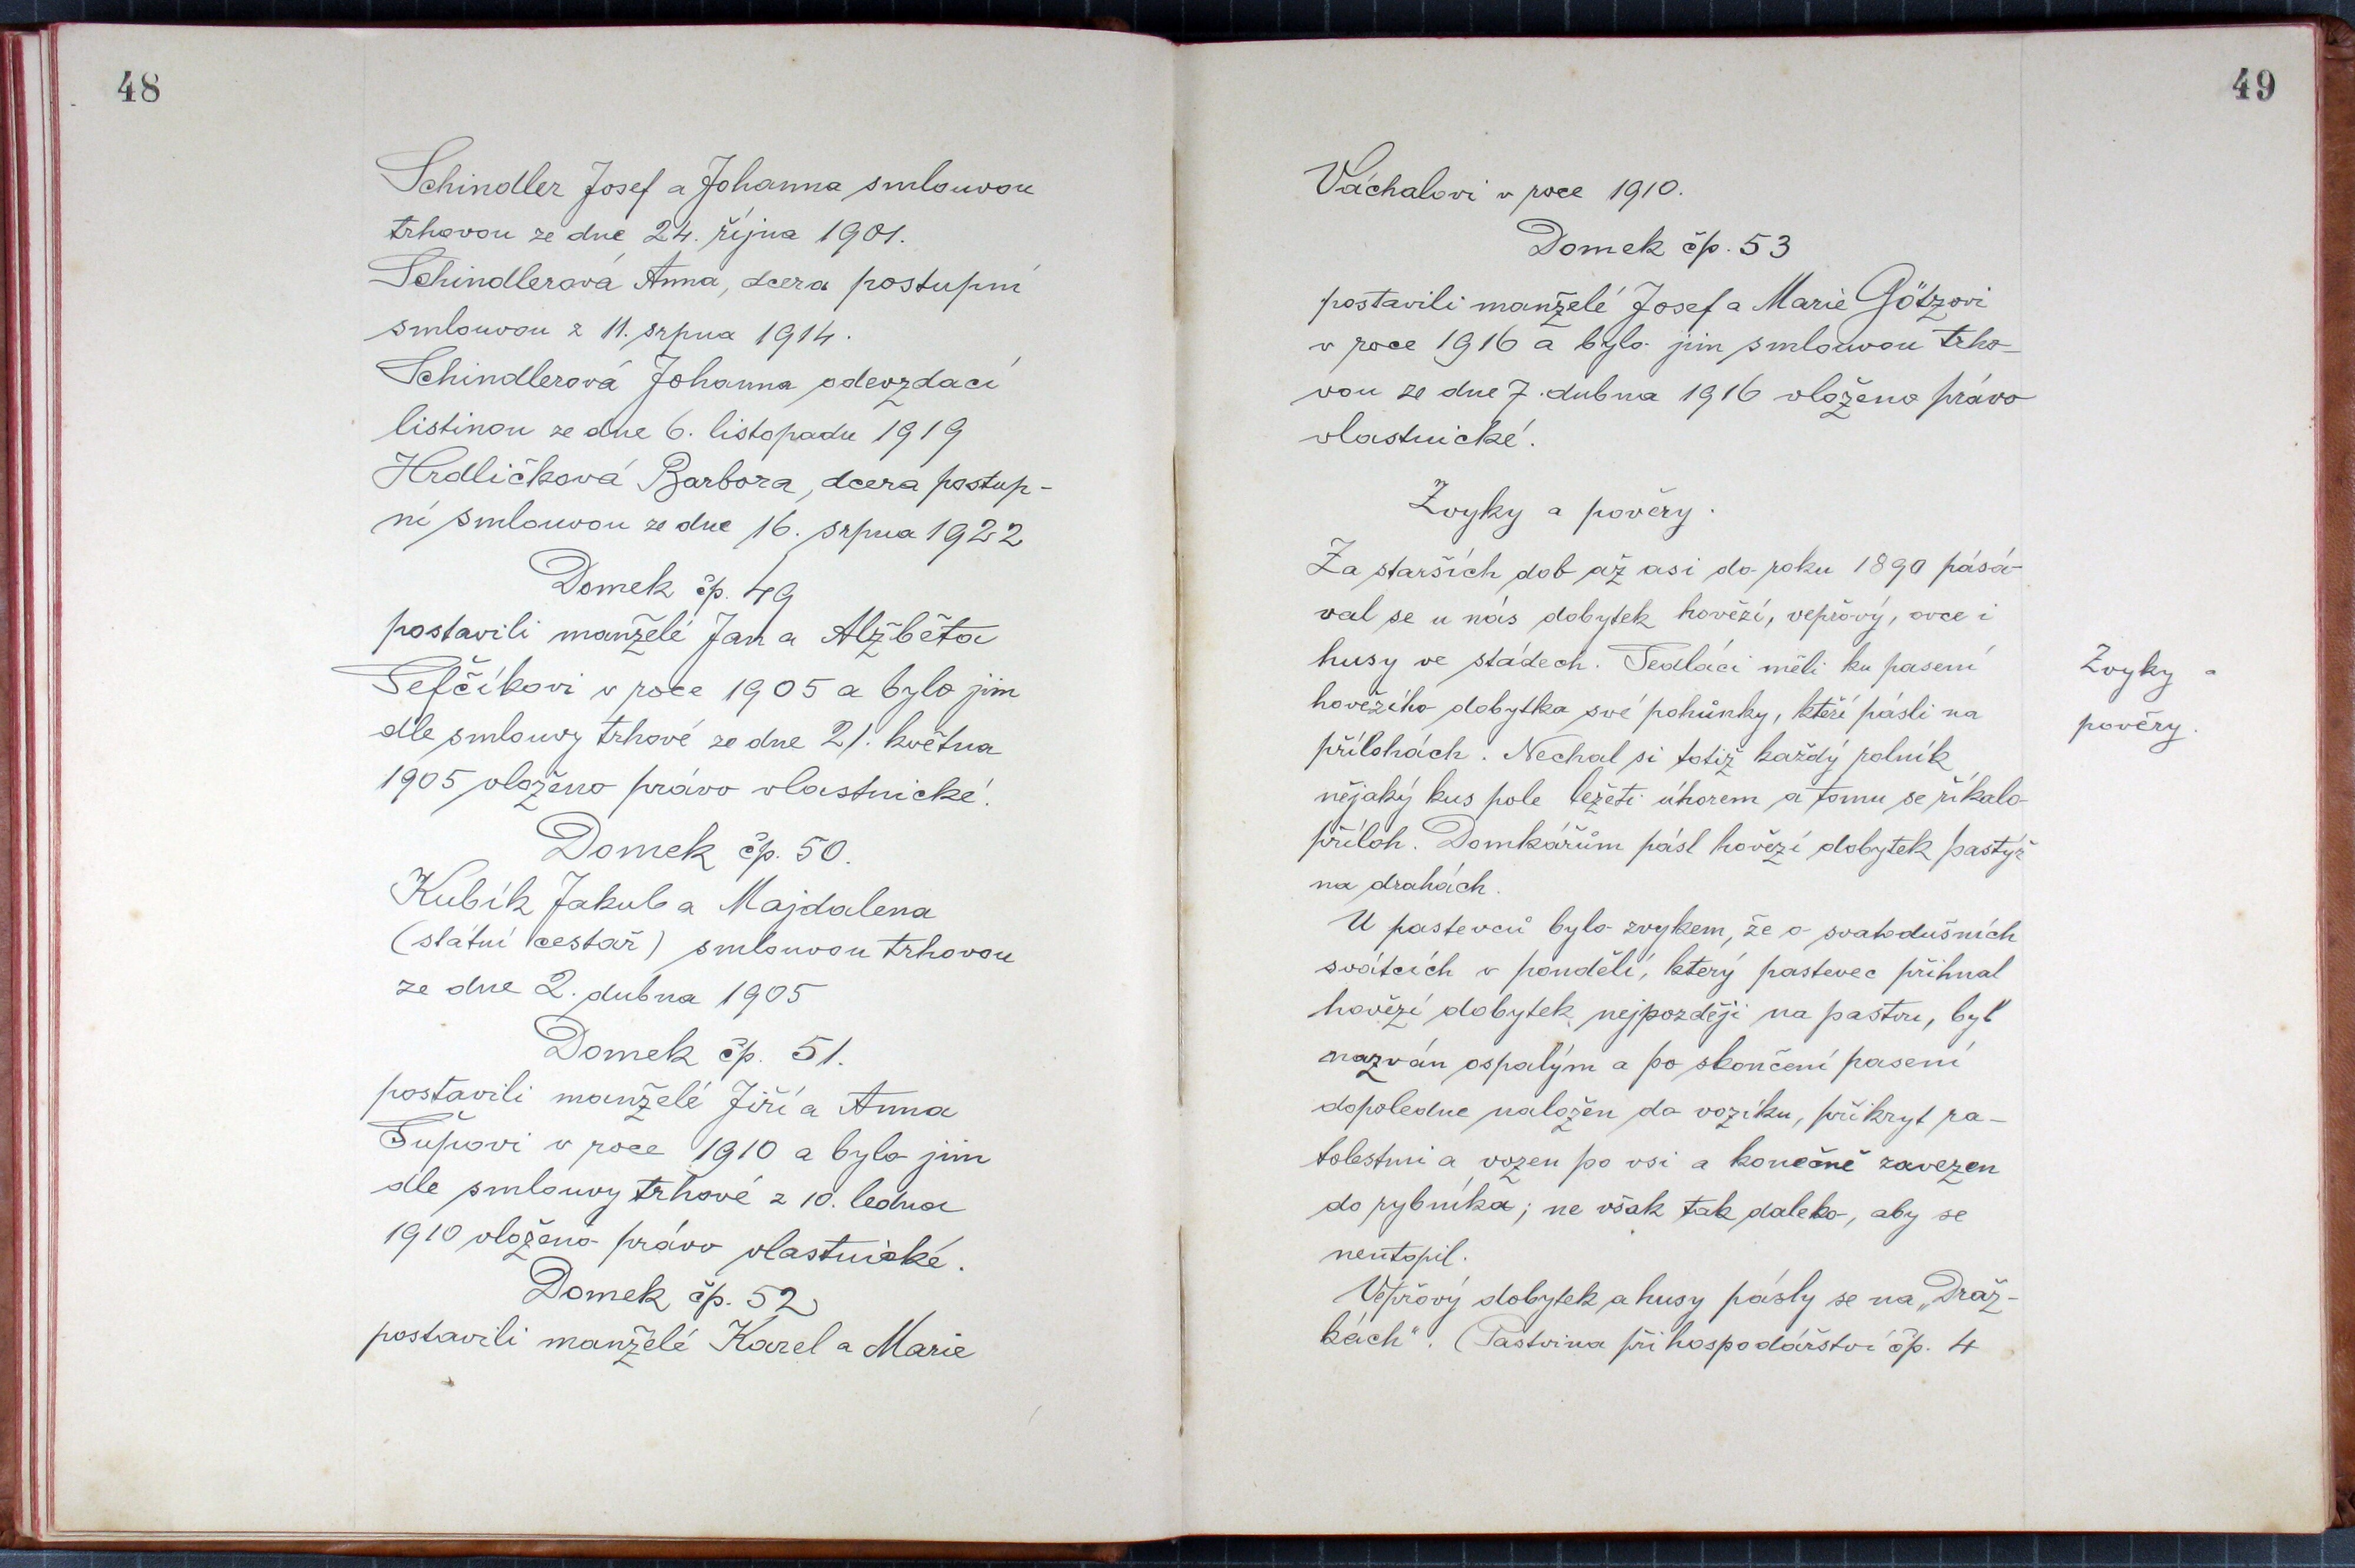 48
Schindler Josef a Johanna smlouvou
trhovou ze dne 24. října 1901.
Schindlerová Anna, dcera postupní
smlouvou z 11. srpna 1914.
Schindlerová Johanna odevzdací
listinou ze dne 6. listopadu 1919
Hrdličková Barbora, dcera postup-
ní smlouvou ze dne 16. srpna 1922
Domek čp. 49
postavili manželé Jan a Alžběta
Šefčíkovi v roce 1905 a bylo jim
dle smlouvy trhové ze dne 21. května
1905 vloženo právo vlastnické.
Domek čp. 50.
Kubík Jakub a Majdalena
(státní cestář) smlouvou trhovou
ze dne 2. dubna 1905
Domek čp. 51.
postavili manželé Jiří a Anna
Ťupovi v roce 1910 a bylo jim
dle smlouvy trhové z 10. ledna
1910 vloženo právo vlastnické.
Domek čp. 52
postavili manželé Karel a Marie
49
Váchalovi v roce 1910.
Domek čp. 53
postavili manželé Josef a Marie Götzovi
v roce 1916 a bylo jim smlouvou trho-
vou ze dne 7. dubna 1916 vloženo právo
vlastnické.
Zvyky a pověry.
Za starších dob až asi do roku 1890 pásá-
val se u nás dobytek hovězí, vepřový, ovce i
husy ve stádech. Sedláci měli ku pasení
hovězího dobytka své pohůnky, kteří pásli na
přílohách. Nechal si totiž každý rolník
nějaký kus pole ležeti úhorem a tomu se říkalo
příloh. Domkářům pásl hovězí dobytek pastýř
na drahách.
U pastevců bylo zvykem, že o svatodušních
svátcích v pondělí, který pastevec přihnal
hovězí dobytek nejpozději na pastvu, byl
nazván ospalým a po skončení pasení
dopoledne naložen do vozíku, přikryt ra-
tolestmi a vozen po vsi a konečně zavezen
do rybníka; ne však tak daleko, aby se
neutopil.
Vepřový dobytek a husy pásly se na „Dráž-
kách“. (Pastvina při hospodářství čp. 4
Zvyky a
pověry.